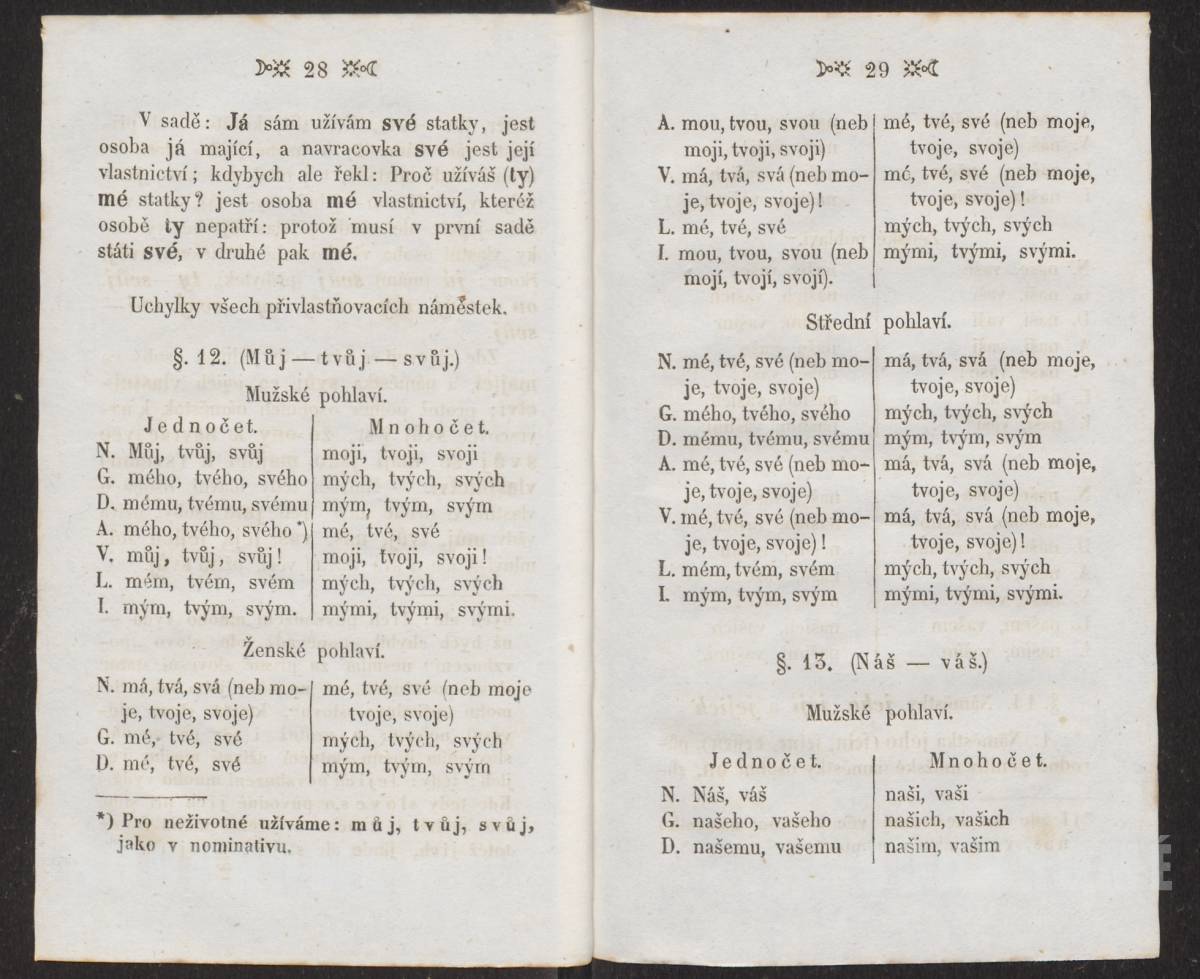 28
V sadě: Já sám užívám své statky, jest
osoba já mající, a navracovka své jest její
vlastnictví; kdybych ale řekl: Proč užíváš (ty)
mé statky? jest osoba mé vlastnictví, kteréž
osobě ty nepatří: protož musí v první sadě
státi své, v druhé pak mé.
Uchylky všech přivlastňovacích náměstek.
§. 12. (Můj — tvůj — svůj.)
Mužské pohlaví.
Jednočet. Mnohočet.
N. Můj, tvůj, svůj moji, tvoji, svoji
G. mého, tvého, svého mých, tvých, svých
D. mému, tvému, svému mým, tvým, svým
A. mého, tvého, svého *) mé, tvé, své
V. můj, tvůj, svůj! moji, tvoji, svoji!
L. mém, tvém, svém mých, tvých, svých
I. mým, tvým, svým. mými, tvými, svými.
Ženské pohlaví.
N. má, tvá, svá (neb mo- mé, tvé, své (neb moje
je, tvoje, svoje) tvoje, svoje)
G. mé, tvé, své mých, tvých, svých
D. mé, tvé, své mým, tvým, svým
*) Pro neživotné užíváme: můj, tvůj, svůj,
jako v nominativu.
29
A. mou, tvou, svou (neb mé, tvé, své (neb moje,
moji, tvoji, svoji) tvoje, svoje)
V. má, tvá, svá (neb mo- mé, tvé, své (neb moje,
je, tvoje, svoje)! tvoje, svoje)!
L. mé, tvé, své mých, tvých, svých
I. mou, tvou, svou (neb mými, tvými, svými.
mojí, tvojí, svojí).
Střední pohlaví.
N. mé, tvé, své (neb mo- má, tvá, svá (neb moje,
je, tvoje, svoje) tvoje, svoje)
G. mého, tvého, svého mých, tvých, svých
D. mému, tvému, svému mým, tvým, svým
A. mé, tvé, své (neb mo- má, tvá, svá (neb moje,
je, tvoje, svoje) tvoje, svoje)
V. mé, tvé, své (neb mo- má, tvá, svá (neb moje,
je, tvoje, svoje)! tvoje, svoje)!
L. mém, tvém, svém mých, tvých, svých
I. mým, tvým, svým mými, tvými, svými.
§. 13. (Náš — váš.)
Mužské pohlaví.
Jednočet. Mnohočet.
N. Náš, váš naši, vaši
G. našeho, vašeho našich, vašich
D. našemu, vašemu našim, vašim